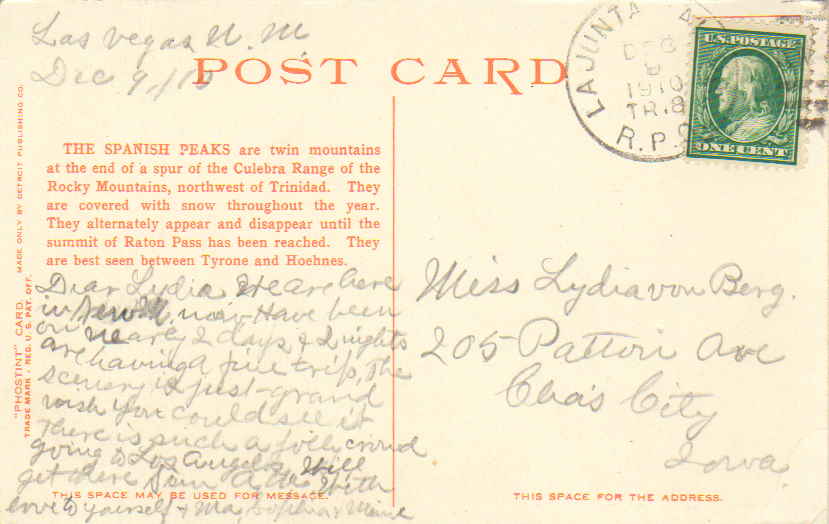 Las Vegas N. M
Dec 9/10
POST CARD
LAJUNTA
DEC
9
1910
TR.8
R.P.O
U.S. POSTAGE
ONE CENT
THE SPANISH PEAKS are twin mountains
at the end of a spur of the Culebra Range of the
Rocky Mountains, northwest of Trinidad. They
are covered with snow throughout the year.
They alternately appear and disappear until the
summit of Raton Pass has been reached. They
are best seen between Tyrone and Hoehnes.
"PHOSTINT" CARD. MADE ONLY BY DETROIT PUBLISHING CO.
TRADE MARK, REG. U. S. PAT. OFF.
Dear Lydia We are here
in New M. now Have been
on nearly 2 days & 2 nights
are having a fine trip, the
scenery is just grand
wish you could see it
There is such a jolly crowd
going to Los Angeles Will
get there Sun A.M. With
love to yourself & Ma, Sophia & Minnie
Miss Lydia von Berg.
205 Patton Ave
Chas City
Iowa
THIS SPACE MAY BE USED FOR MESSAGE.
THIS SPACE FOR THE ADDRESS.